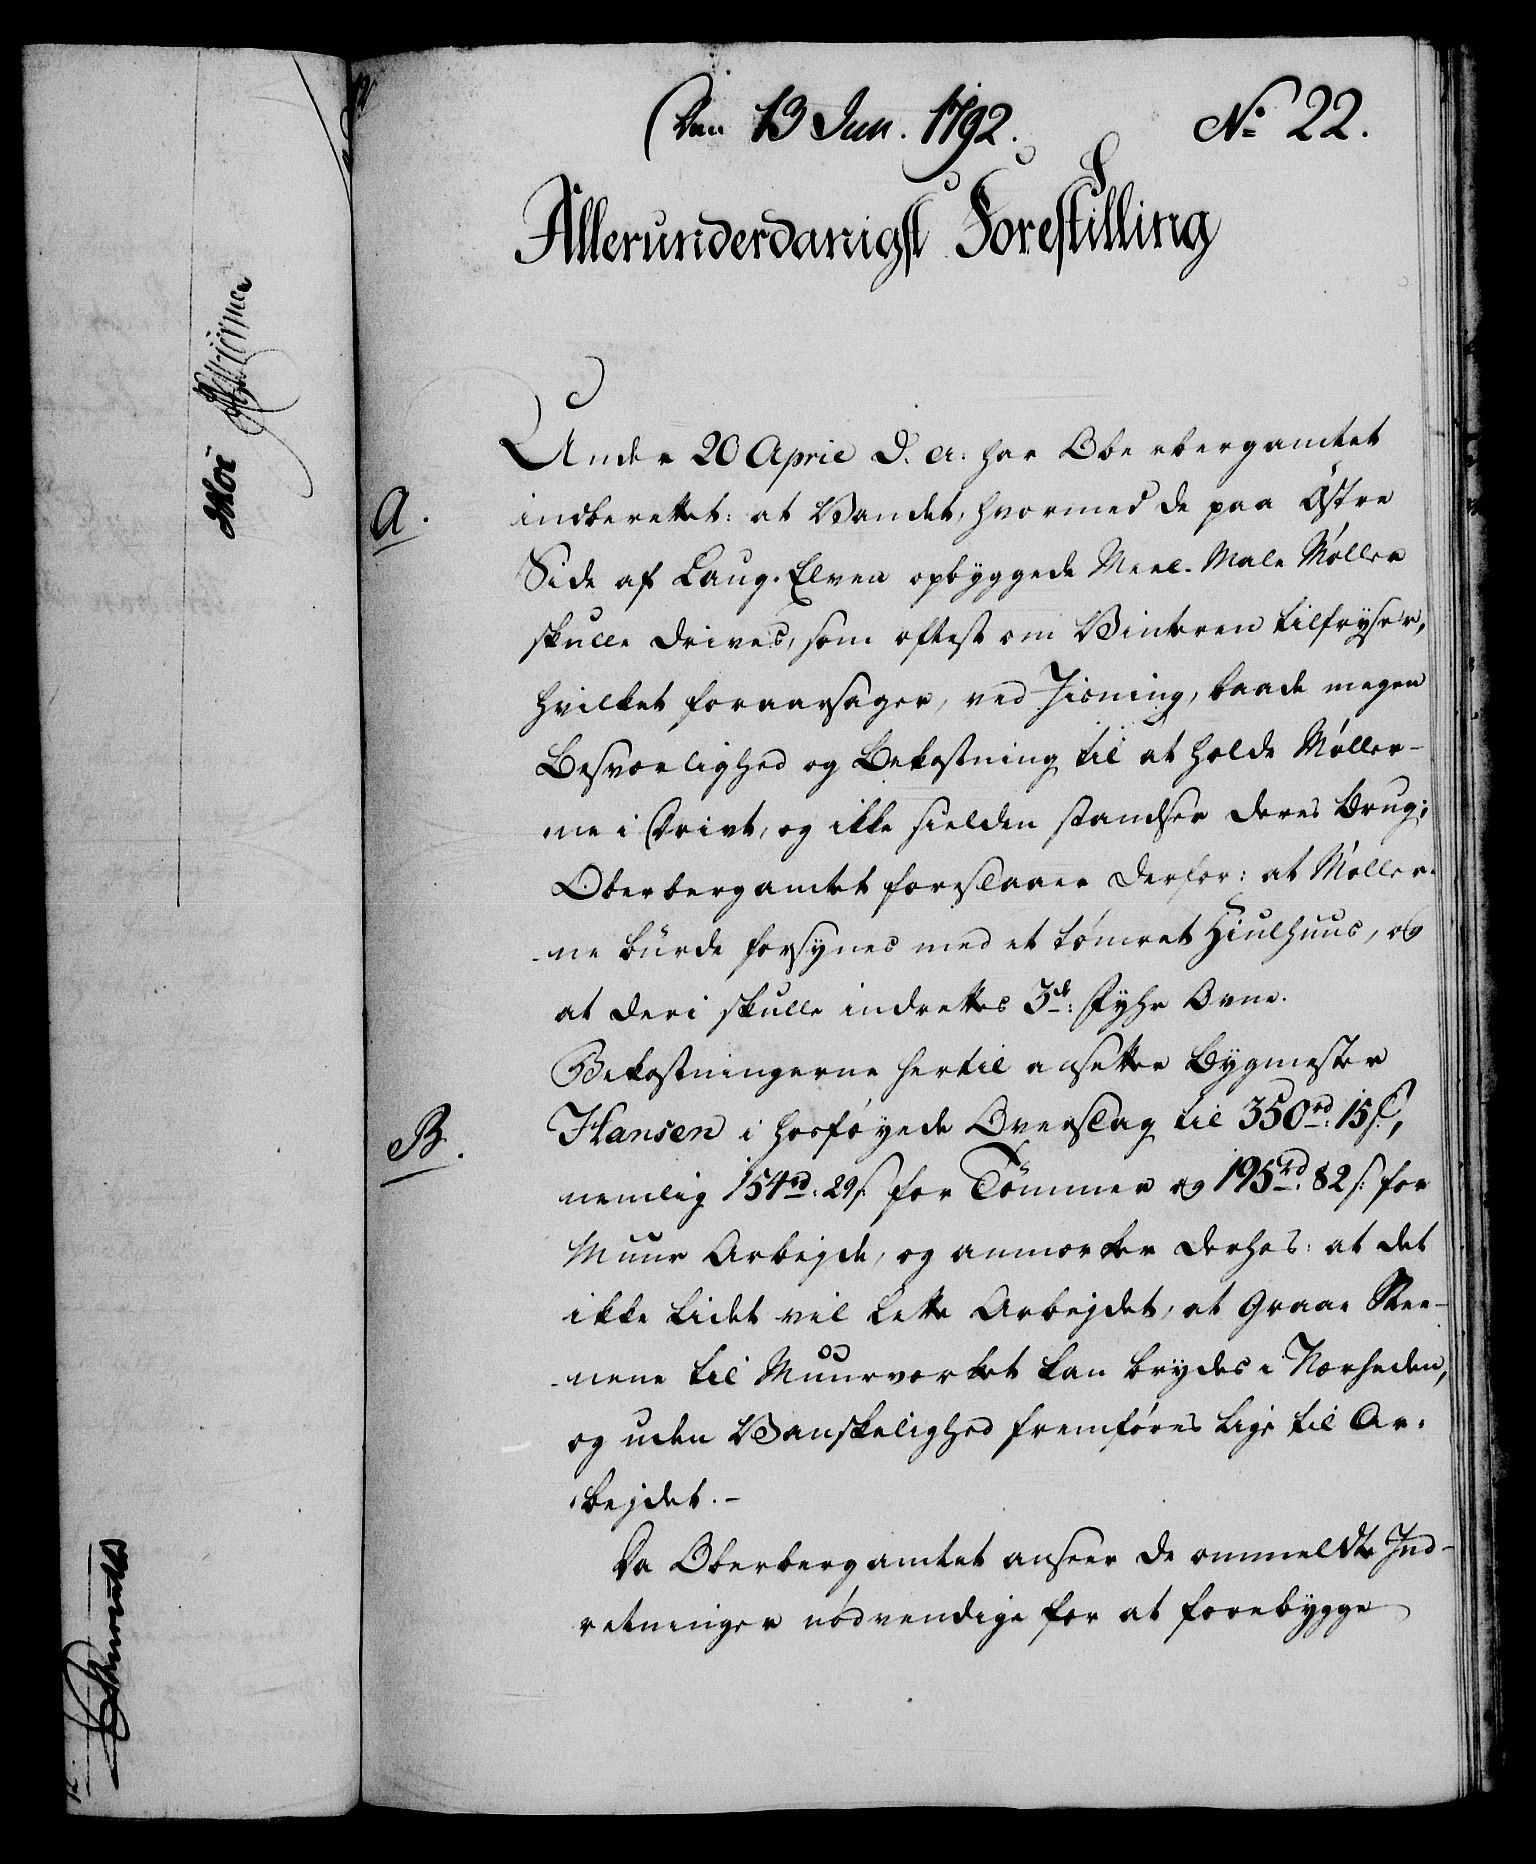 Den 13 Jun. 1792. No 22.
Allerunderdanigst Forestilling
Under 20 April d. A. har Oberbergamtet
A.
indberettet: at Vandet, hvormed de paa Østre
Side af Laug-Elven opbÿggede Meel-Male Møller
skulle drives, som oftest om Vinteren tilfryser,
hvilket foraarsager, ved Jisning, baade megen
Besværlighed og Bekostning til at holde Møller-
ne i Drivt, og ikke sielden standser deres Brug;
Oberbergamtet foreslaaer derfor: at Møller-
ne bürde forsynes med et tømret Hiulhuus, og
at deri skulle indrettes 3de: Fyhr Ovne.
Bekostningerne hertil ansetter Bygmester
B.
Hansen i hosføyede Overslag til 350rd: 15 s,
nemlig 154rd: 29 s. for Tømmer og 195rd: 82 s: for
Muur Arbejde, og anmærker derhos: at det
ikke lidet vil lette Arbejdet, at Graae Stee-
nene til Muurværket kan brydes i Nærheden,
og uden Vanskelighed fremføres lige til Ar-
bejdet.-
Da Oberbergamtet anseer de ommeldte Ind-
retninger nødvendige for at forebygge